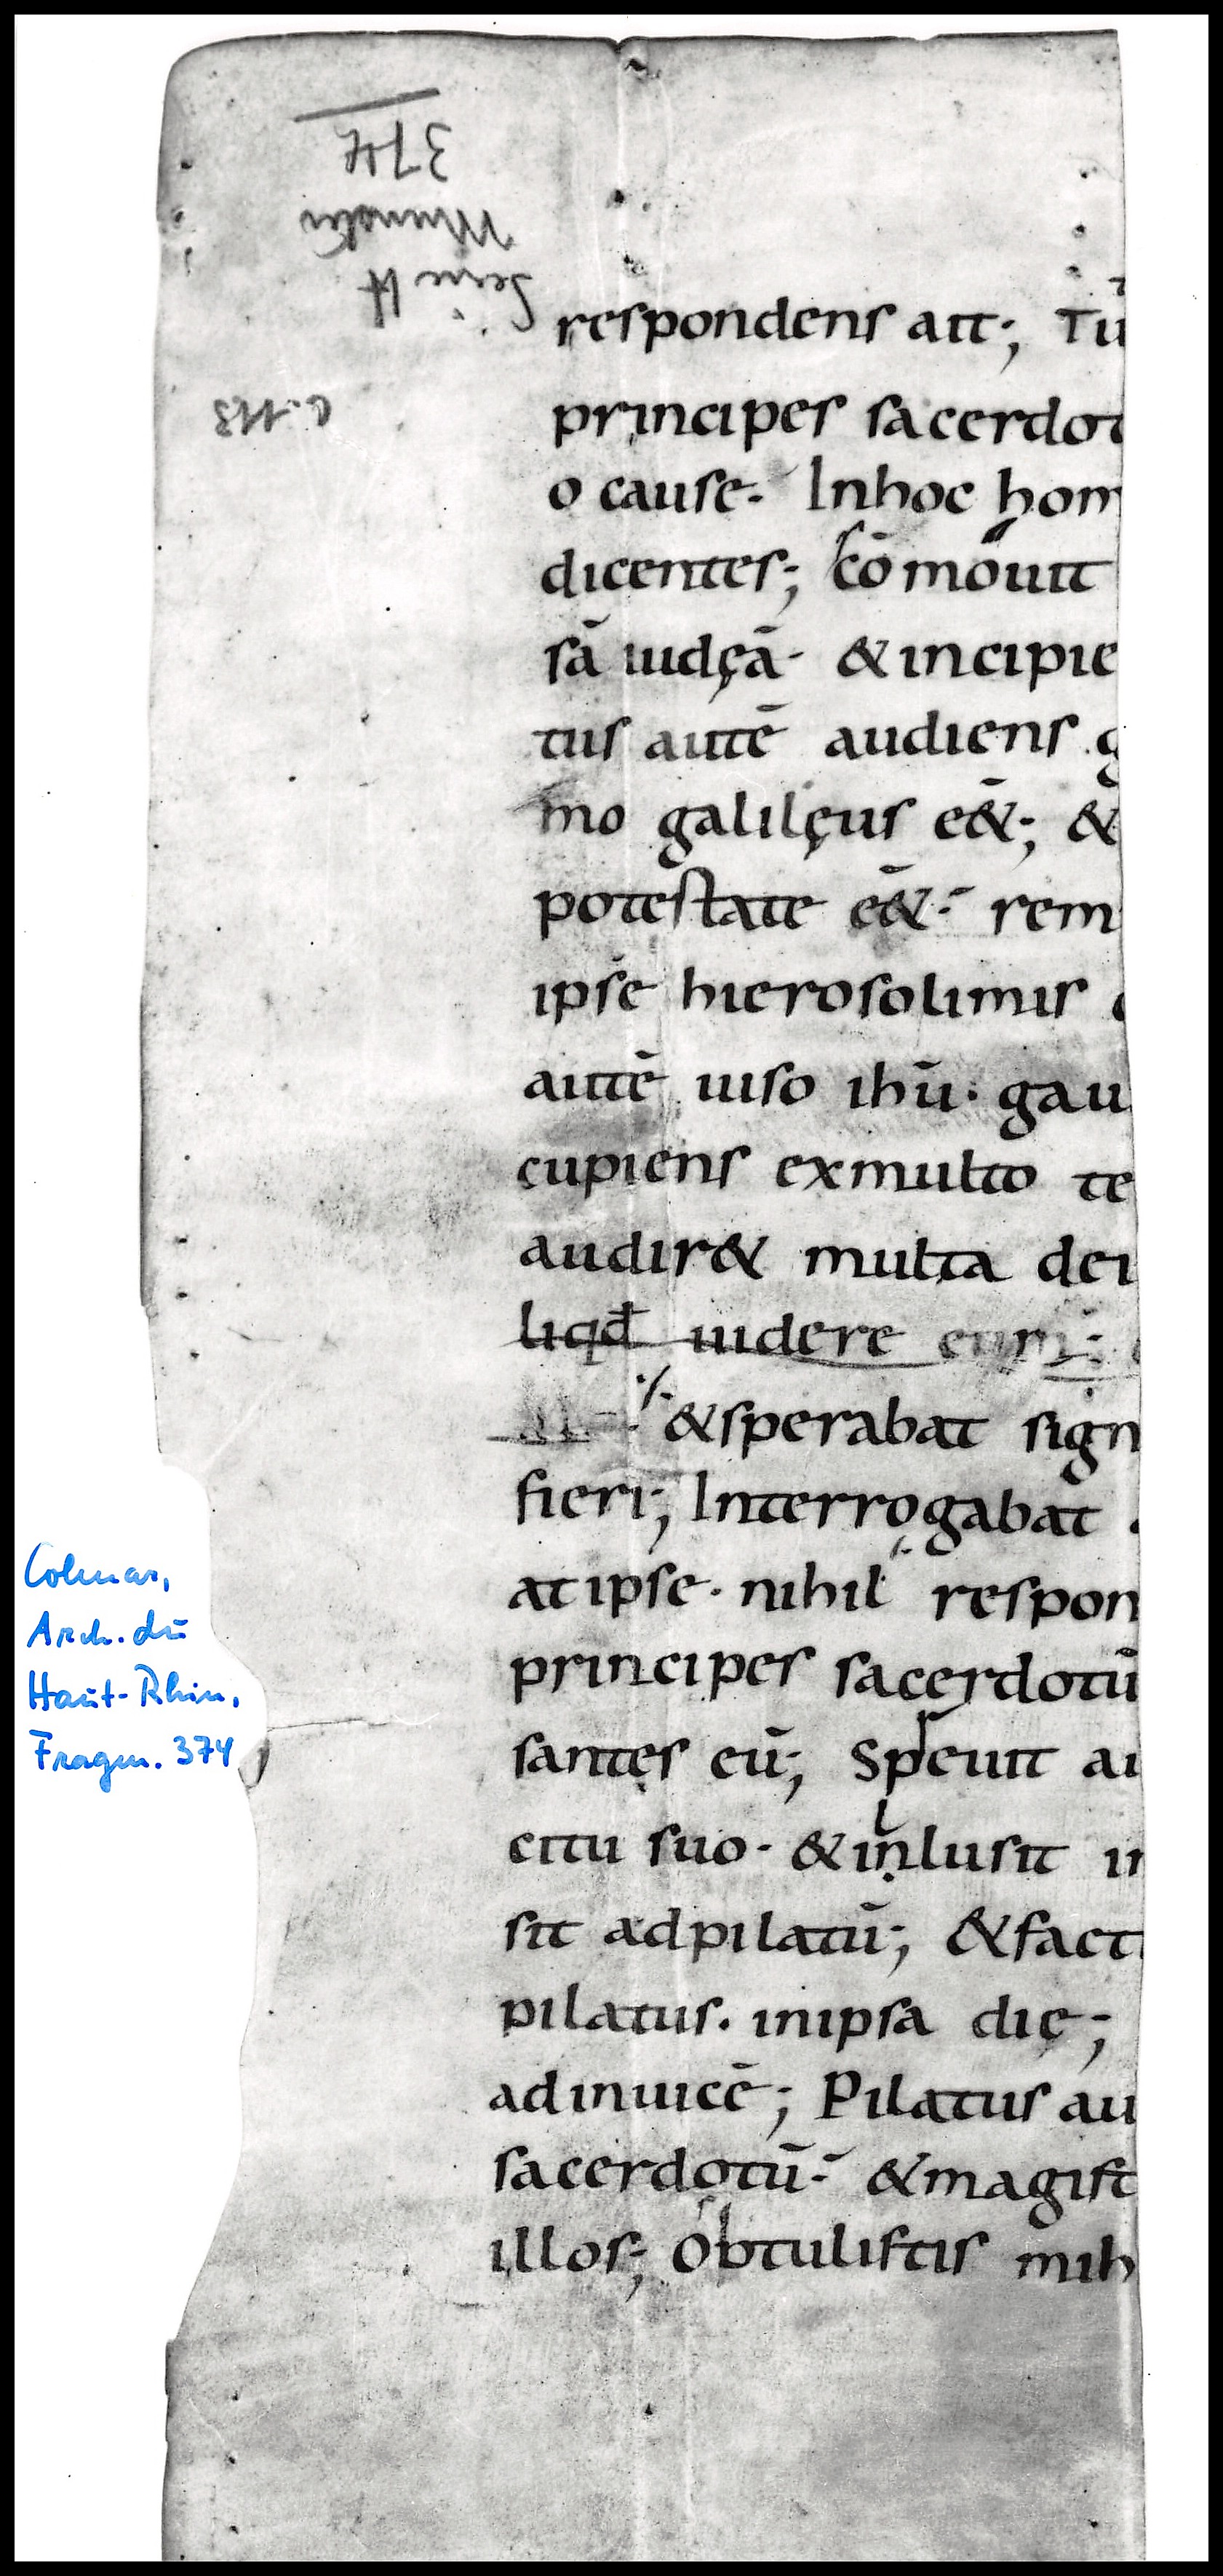 374
Serie H
c. 113
respondens ait; Tū
principes sacerdot
o cause. Inhoc hom
dicentes; Cōmouit
sā iudęā. & incipie
tus autē audiens g
mo galilęus eēt; &
potestate ēet. rem
ipse hierosolimis
autē uiso ihū. gau
cupiens exmulto te
audir& multa dei
liqđ uidere eum;
&sperabat sign
fieri; Interrogabat
atipse. nihil respon
principes sacerdotū
santes eū; Speuit au
citu suo. & inlusit in
sit adpilatū; &fact
pilatus. inipsa die;
adinuicē; Pilatus au
sacerdotū. & magist
illos; Obtulistis mih
Colmar,
Arch. du
Haut-Rhin,
Fragm. 374